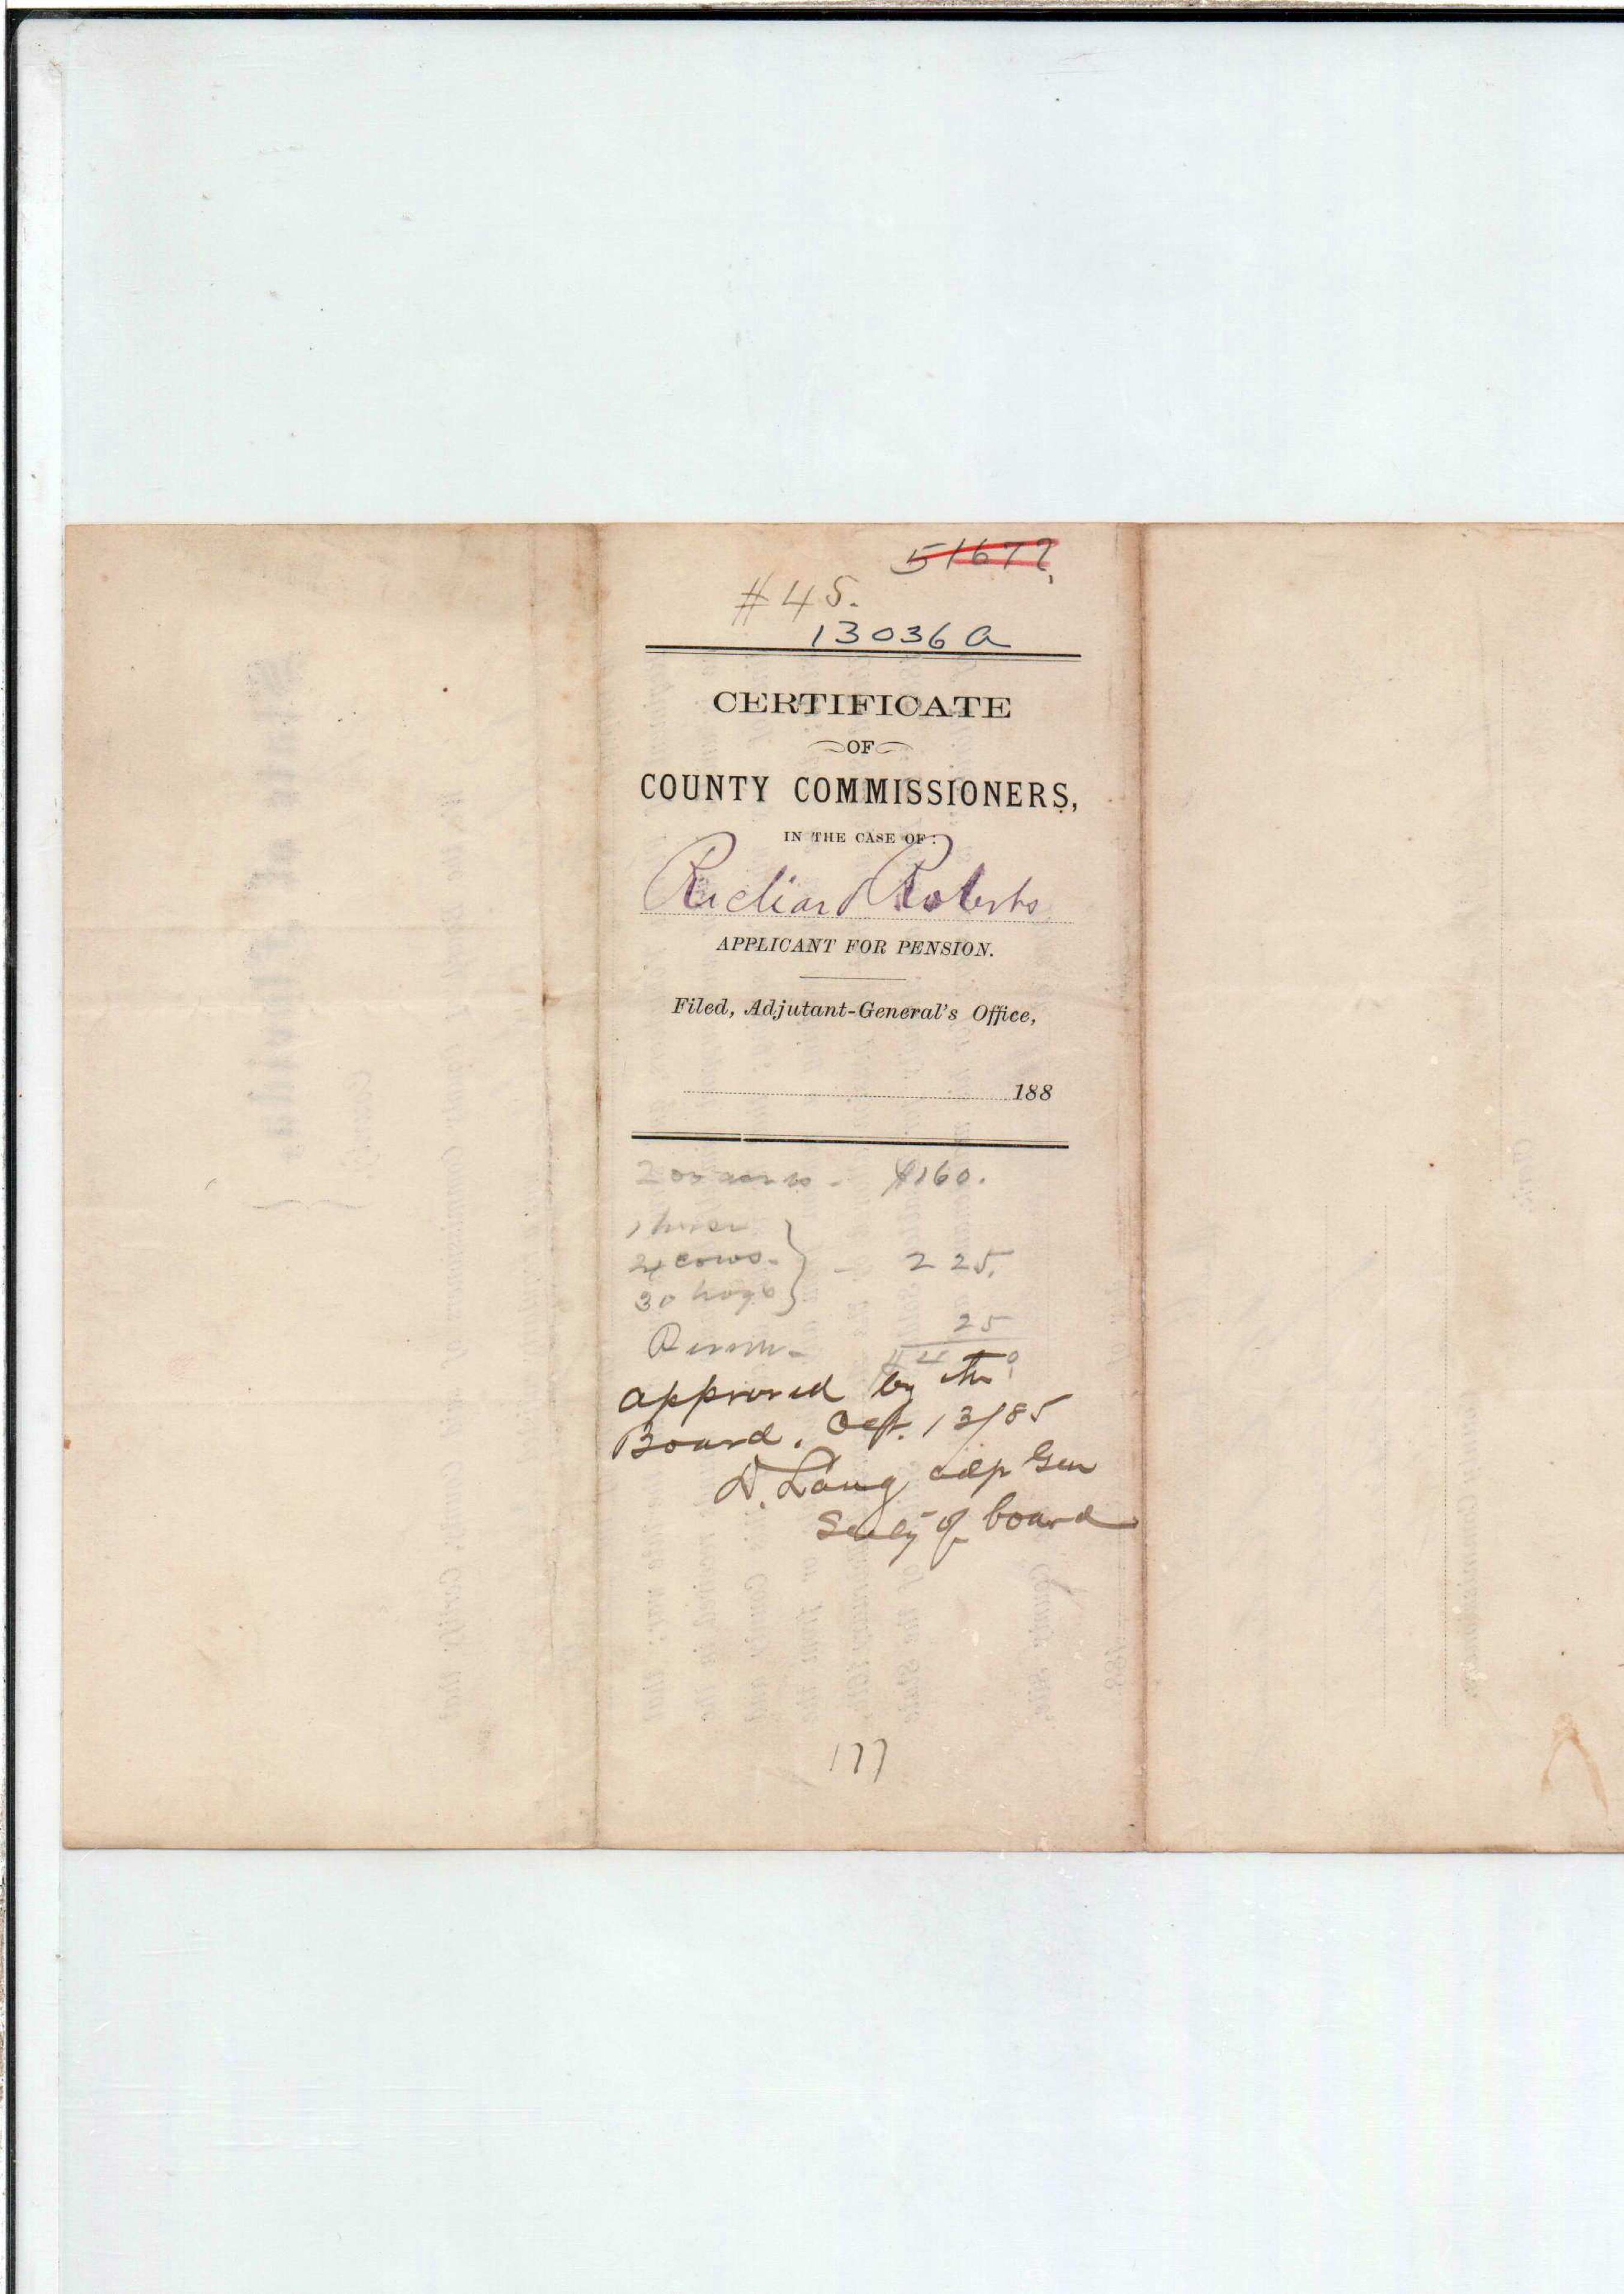 51677
#45.
13036 a
CERTIFICATE
OF
COUNTY COMMISSIONERS,
IN THE CASE OF:
Richard Roberts
APPLICANT FOR PENSION.
Filed, Adjutant-General's Office,
188
200 acres - $160.
1 horse
cows - 225.
30 hogs
25
approved by the
Board. Oct. 13/85
D. Lang adj Gen
Secty of board
177